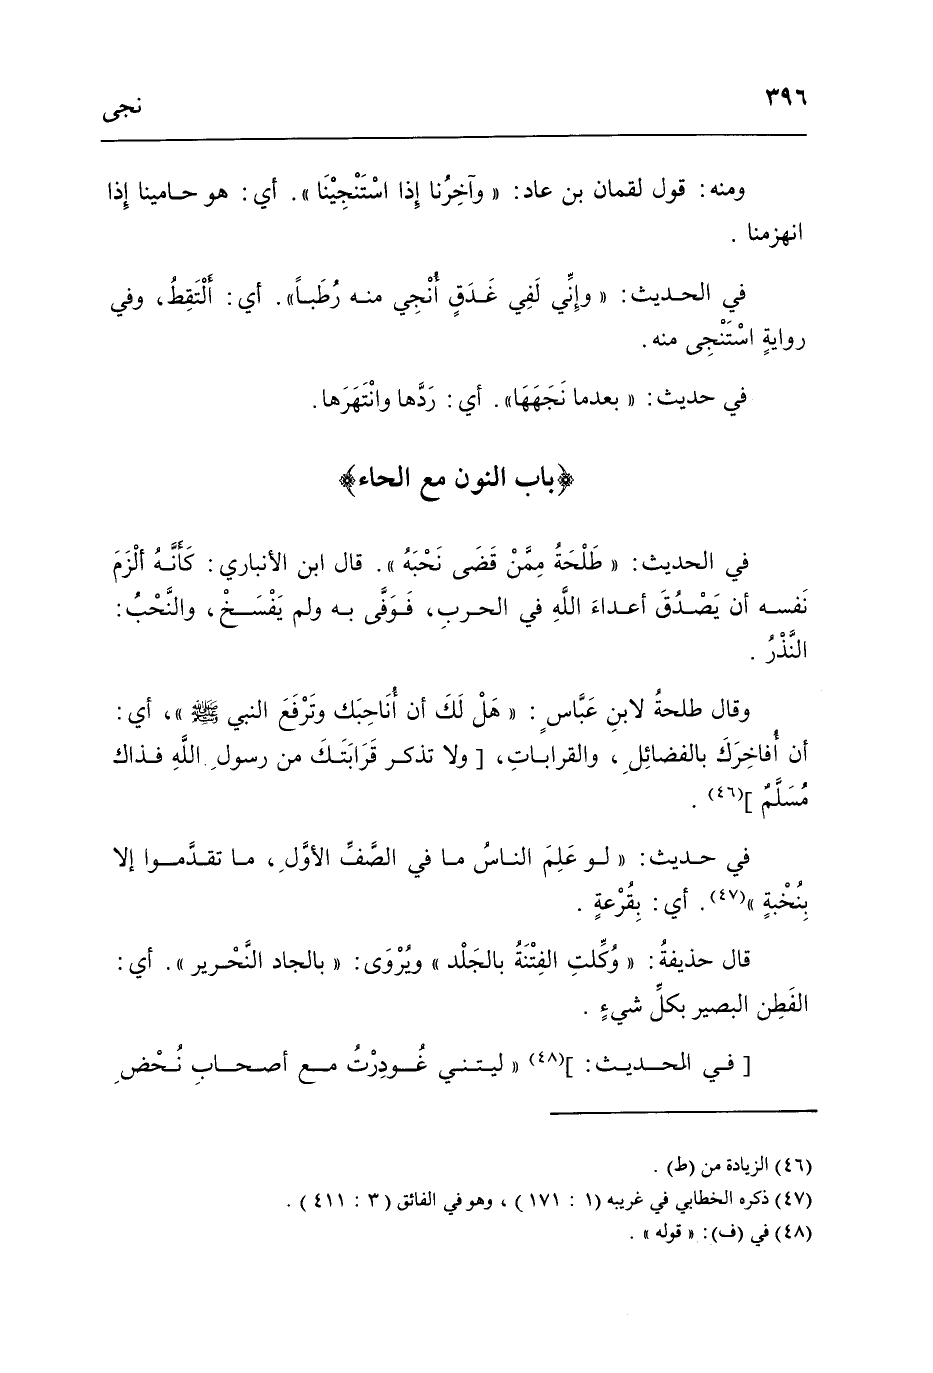 ٣٩٦
نجى
ومنه: قول لقمان بن عاد: « وآخِرُنا إِذا اسْتَنْجَيْنَا ». أي: هو حامينا إِذا
انهزمنا .
في الحديث: « وإِنِّي لَفِي غَدَقٍ أُنْجِي منه رُطَباً». أي: أَلْتَقِطُ، وفي
روايةٍ اسْتَنْجِى منه .
في حديث: « بعدما نَجَهَهَا». أي: رَدَّها وانْتَهَرَها.
﴿باب النون مع الحاء﴾
في الحديث: « طَلْحَةُ مِمَّنْ قَضَى نَحْبَهُ ». قال ابن الأنباري: كَأَنَّهُ أَلْزَمَ
نَفسه أن يَصْدُقَ أعداءَ اللَّهِ في الحربِ، فَوَفَّى به ولم يَفْسَخْ، والنَّحْبُ:
النَّذْرُ .
وقال طلحةُ لابنِ عَبَّاسٍ : « هَلْ لَكَ أن أُنَاحِبَك وتَرْفَعَ النبي ﷺ »، أي:
أن أُفاخِرَكَ بالفضائِلِ ، والقراباتِ، [ ولا تذكر قَرَابَتَكَ من رسولِ اللَّهِ فذاك
مُسَلَّمٌ ](٤٦) .
في حديث: « لو عَلِمَ الناسُ ما في الصَّفِّ الأوَّلِ ، ما تقدَّموا إلا
بِنُحْبةٍ »(٤٧). أي: بِقُرْعةٍ .
قال حذيفةُ: « وُكِّلتِ الفِتْنَةُ بالجَلْد » ويُرْوَى: « بالجاد النَّحْرير ». أي:
الفَطِن البصير بكلِّ شيءٍ .
[ في الحديث: ](٤٨) « ليتني غُودِرْتُ مع أصحابِ نُحْضِ
(٤٦) الزيادة من (ط) .
(٤٧) ذكره الخطابي في غريبه (١ : ١٧١ ) ، وهو في الفائق (٣ : ٤١١ ) .
(٤٨) في (ف): « قوله » .